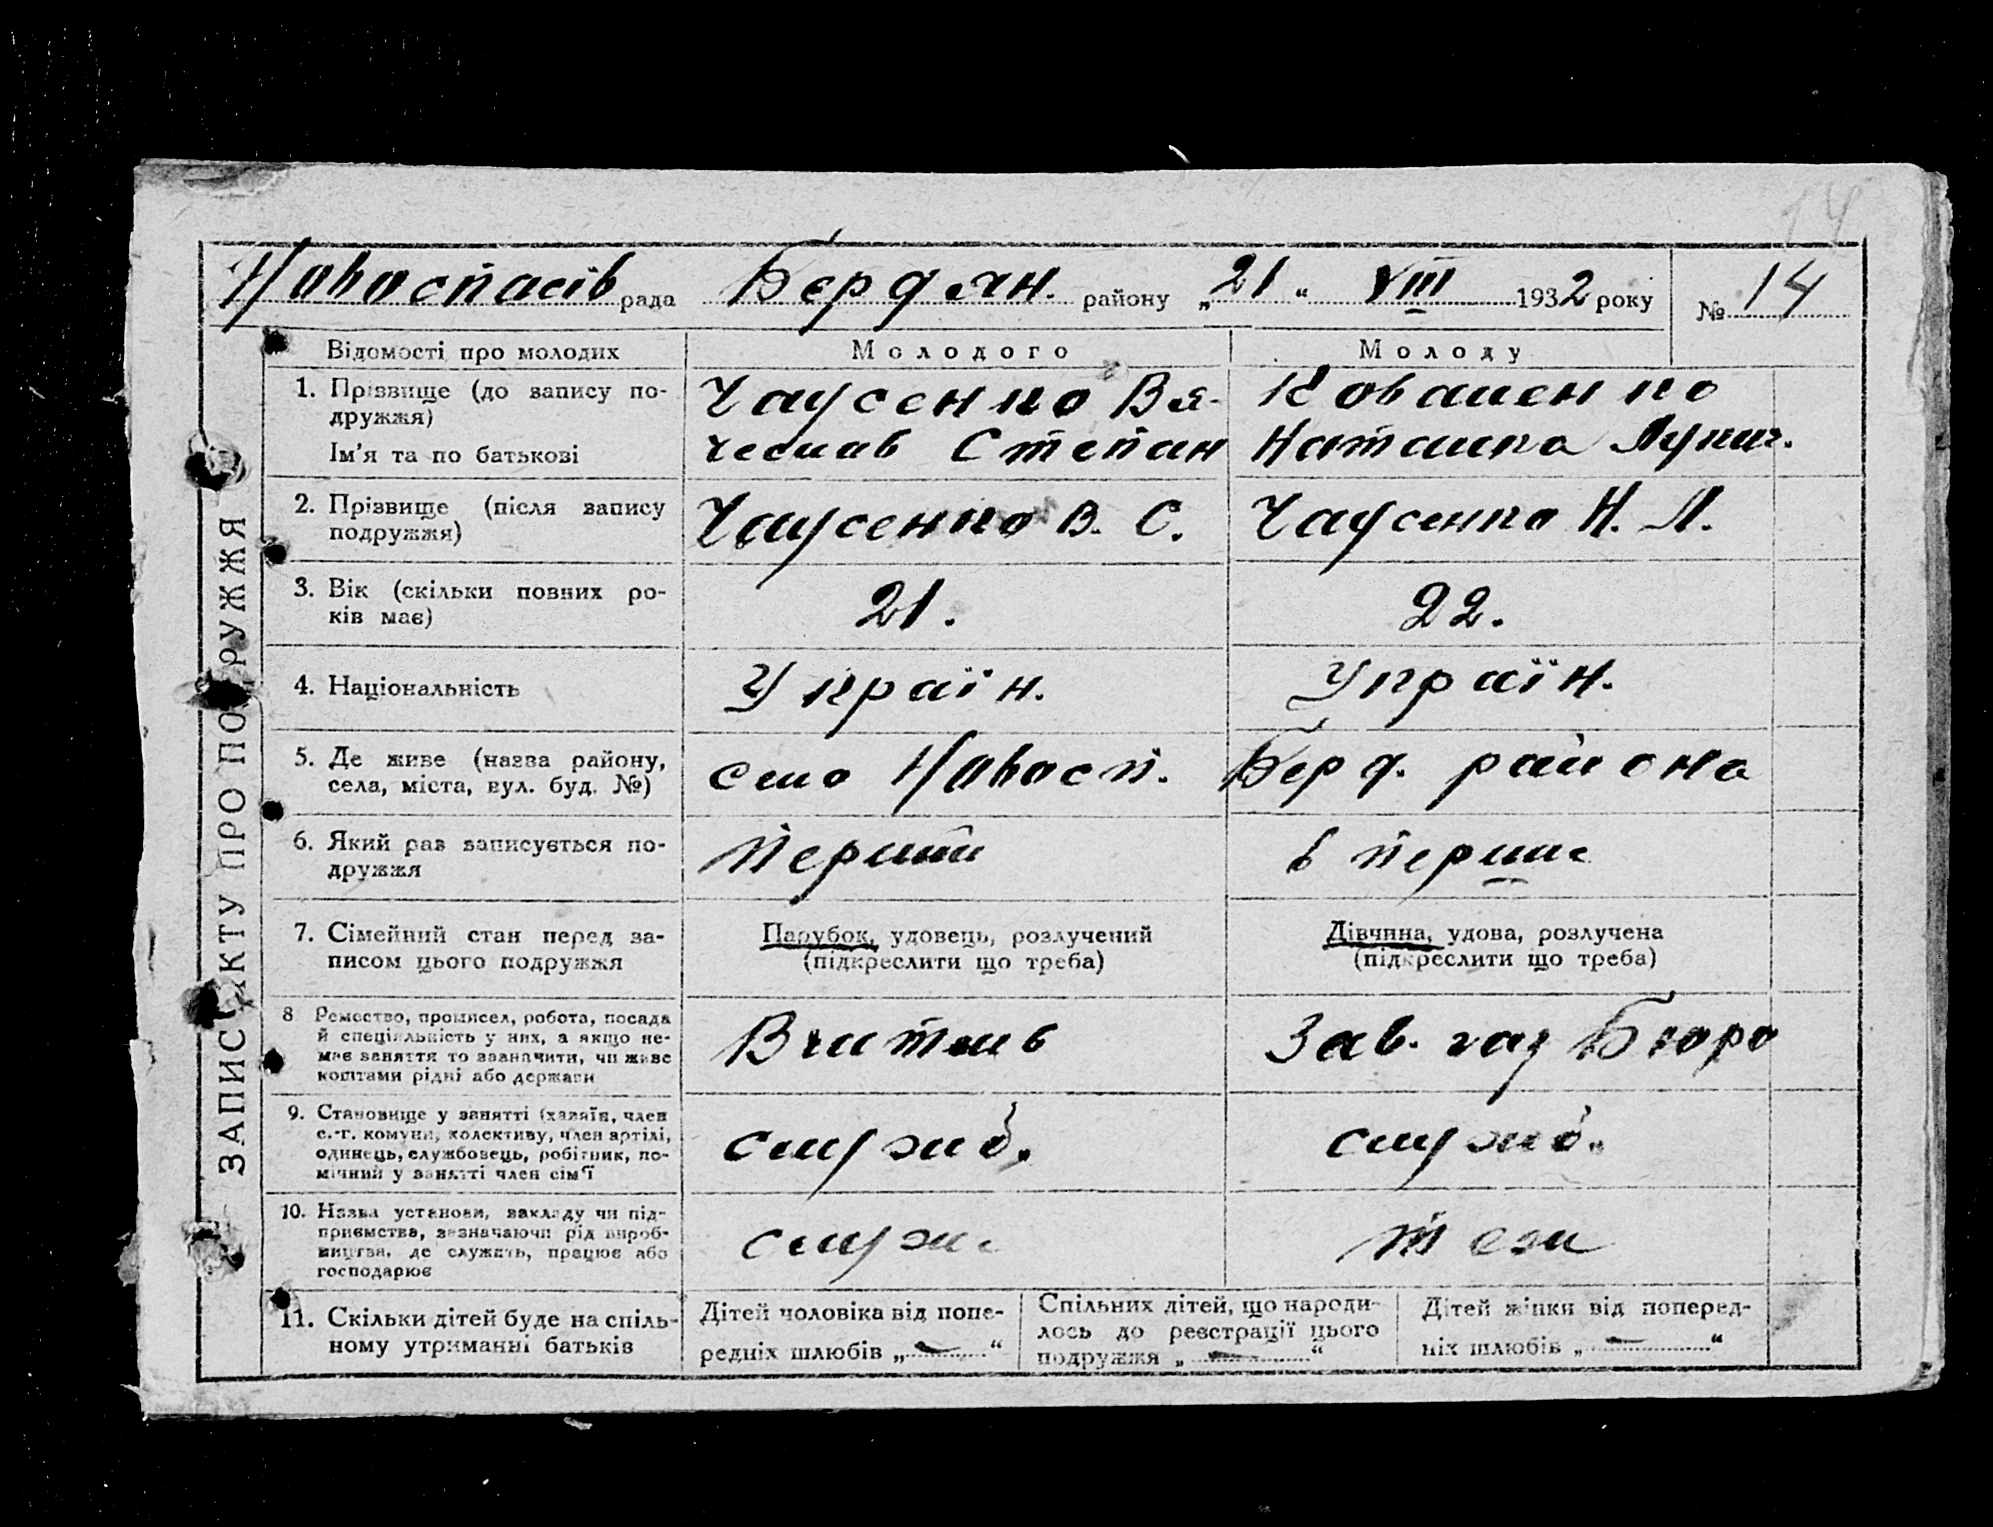 14
Новоспасів рада Бердян. району „21“ VIII 1932 року № 14
ЗАПИС АКТУ ПРО ПОДРУЖЖЯ
Відомості про молодих Молодого Молоду
1. Прізвище (до запису по- Чаусенко Вя- Коваленко
дружжя)
Ім'я та по батькові чеслав Степан Наталка
2. Прізвище (після запису Чаусенко В. С. Чаусенко Н. Л.
подружжя)
3. Вік (скільки повних ро- 21. 22.
ків має)
4. Національність Україн. Україн.
5. Де живе (назва району, село Новосп. Берд. района
села, міста, вул. буд. №)
6. Який раз записується по- Перший в перше
дружжя
7. Сімейний стан перед за- Парубок, удовець, розлучений Дівчина, удова, розлучена
писом цього подружжя (підкреслити що треба) (підкреслити що треба)
8 Ремество, промисел, робота, посада
й спеціяльність у них, а якщо не- Вчитель Зав. Бюро
має заняття то зазначити, чи живе
коштами рідні або держави
9. Становище у занятті (хазяїн, член
с.-г. комуни, колективу, член артілі, служб. служб.
одинець, службовець, робітник, по-
мічний у занятті член сім'ї
10. Назва установи, закладу чи під-
приємства, зазначаючи рід вироб- служ теж
ництва, де служить, працює або
господарює
11. Скільки дітей буде на спіль- Дітей чоловіка від попе- Спільних дітей, що народи- Дітей жінки від поперед-
ному утриманні батьків редніх шлюбів „—“ лось до реєстрації цього ніх шлюбів „—“
подружжя „—“